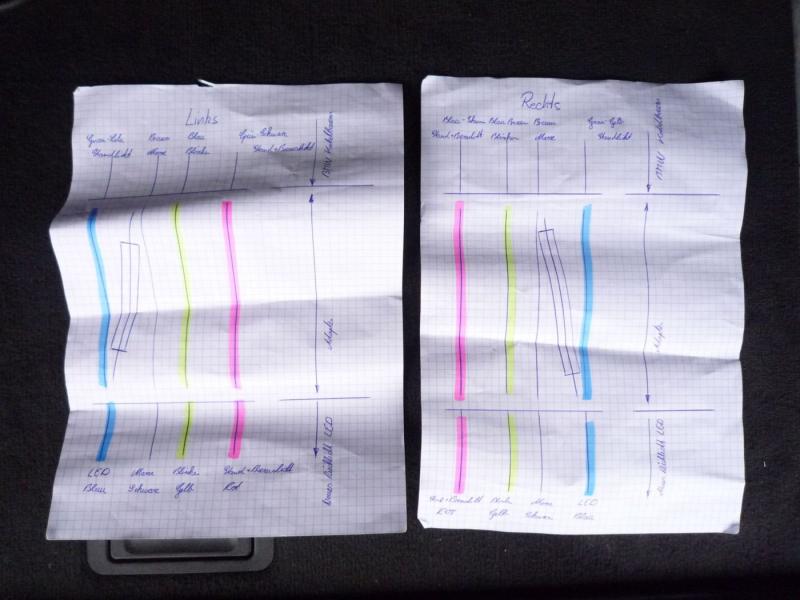 Links
Braun Blau Grün Schwarz
Standlicht Masse Blinker Stand+Bremslicht
BMW Kabelbaum
Adapter
LED Masse Blinker Stand+Bremslicht
Blau Schwarz Gelb Rot
Neues Rücklicht LED
Rechts
Blau Braun Braun Grau Gelb
Stand+Bremslicht Blinker Masse Standlicht
BMW Kabelbaum
Adapter
Stand+Bremslicht Blinker Masse LED
ROT Gelb Schwarz Blau
Neues Rücklicht LED